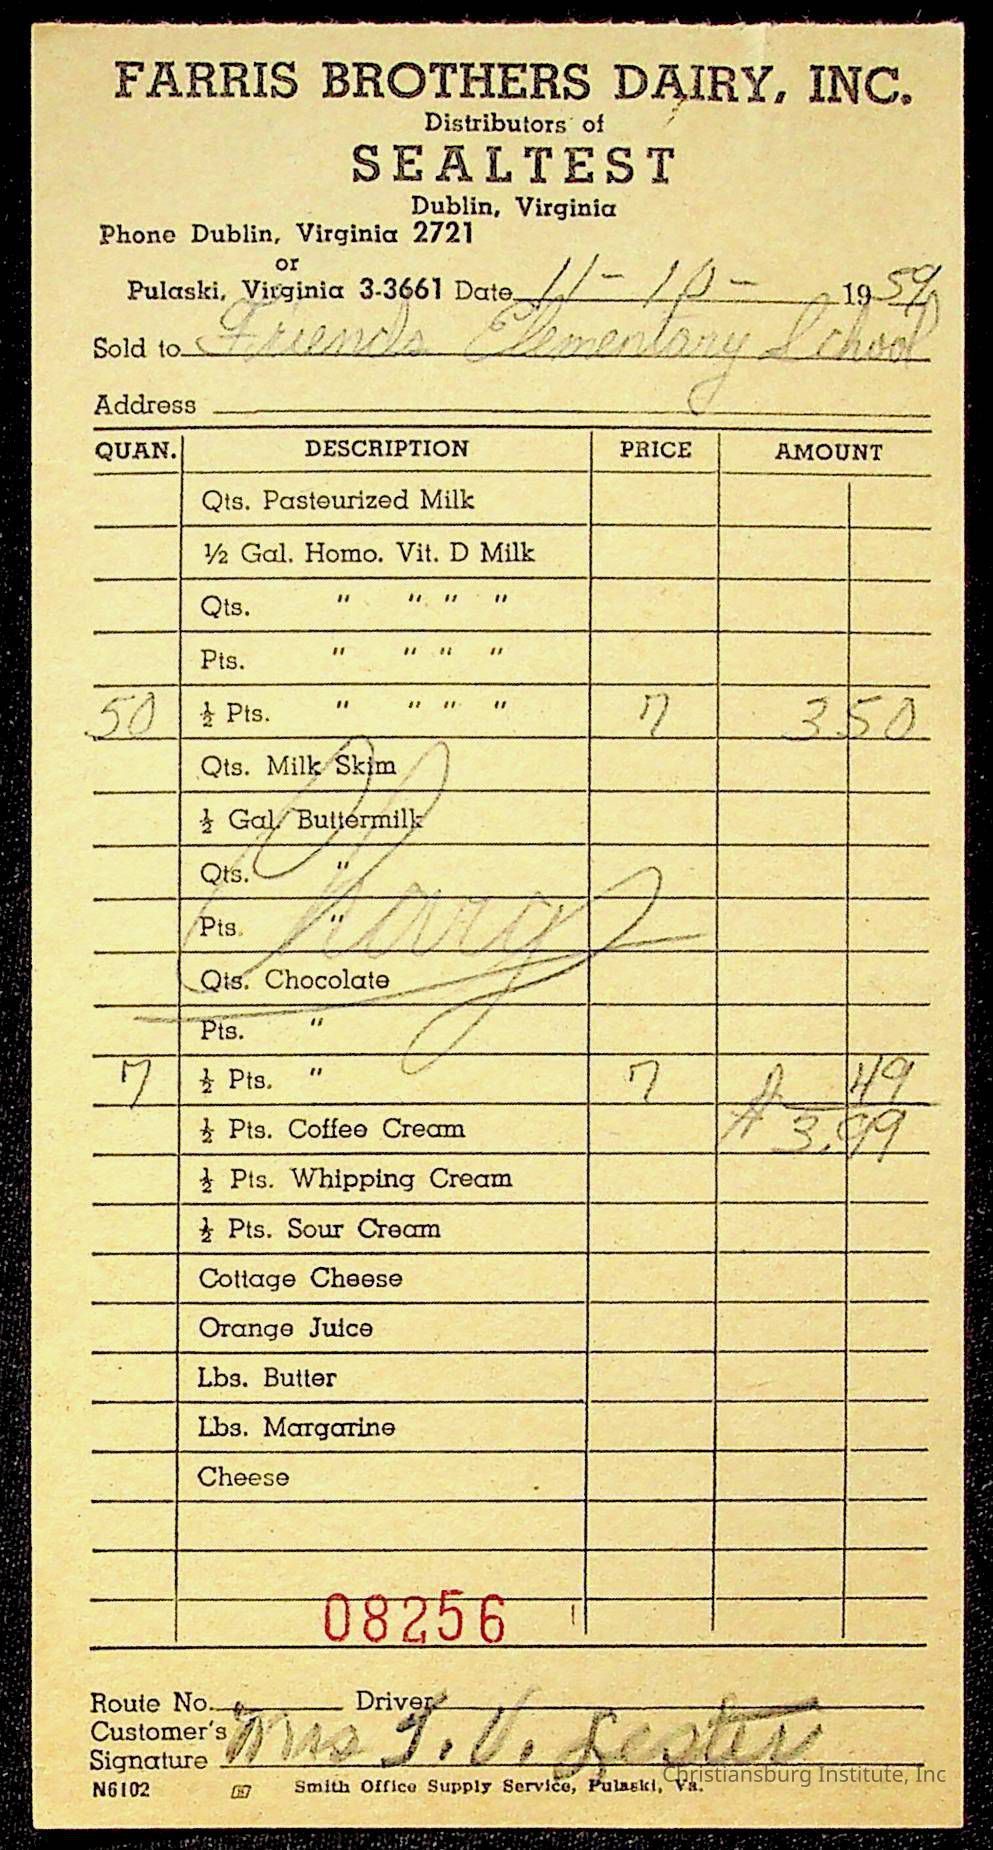 FARRIS BROTHERS DAIRY, INC.
Distributors of
SEALTEST
Dublin, Virginia
Phone Dublin, Virginia 2721
or
Pulaski, Virginia 3-3661 Date 11-10- 1959
Sold to Friends Elementary School
Address
QUAN. DESCRIPTION PRICE AMOUNT
Qts. Pasteurized Milk
½ Gal. Homo. Vit. D Milk
Qts. " " " "
Pts. " " " "
50 ½ Pts. " " " " 7 3 50
Qts. Milk Skim
½ Gal. Buttermilk
Qts. "
Pts. "
Charg
Qts. Chocolate
Pts. "
7 ½ Pts. " 7 49
½ Pts. Coffee Cream 3.99
½ Pts. Whipping Cream
½ Pts. Sour Cream
Cottage Cheese
Orange Juice
Lbs. Butter
Lbs. Margarine
Cheese
08256
Route No. Driver
Customer's
Signature Mrs T. V. Lester
N6102 Smith Office Supply Service, Pulaski, Va.
Christiansburg Institute, Inc